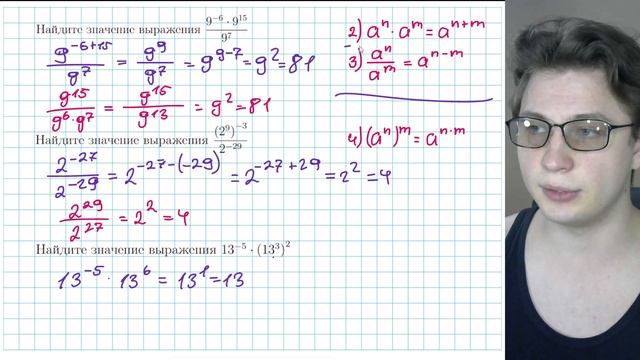 Найдите значение выражения \frac{9^{-6} \cdot 9^{15}}{9^7}
\frac{9^{-6+15}}{9^7} = \frac{9^9}{9^7} = 9^{9-7} = 9^2 = 81
\frac{9^{15}}{9^6 \cdot 9^7} = \frac{9^{15}}{9^{13}} = 9^2 = 81
Найдите значение выражения \frac{(2^9)^{-3}}{2^{-29}}
\frac{2^{-27}}{2^{-29}} = 2^{-27-(-29)} = 2^{-27+29} = 2^2 = 4
\frac{2^{29}}{2^{27}} = 2^2 = 4
Найдите значение выражения 13^{-5} \cdot (13^3)^2
13^{-5} \cdot 13^6 = 13^1 = 13
2) a^n \cdot a^m = a^{n+m}
3) \frac{a^n}{a^m} = a^{n-m}
4) (a^n)^m = a^{n \cdot m}